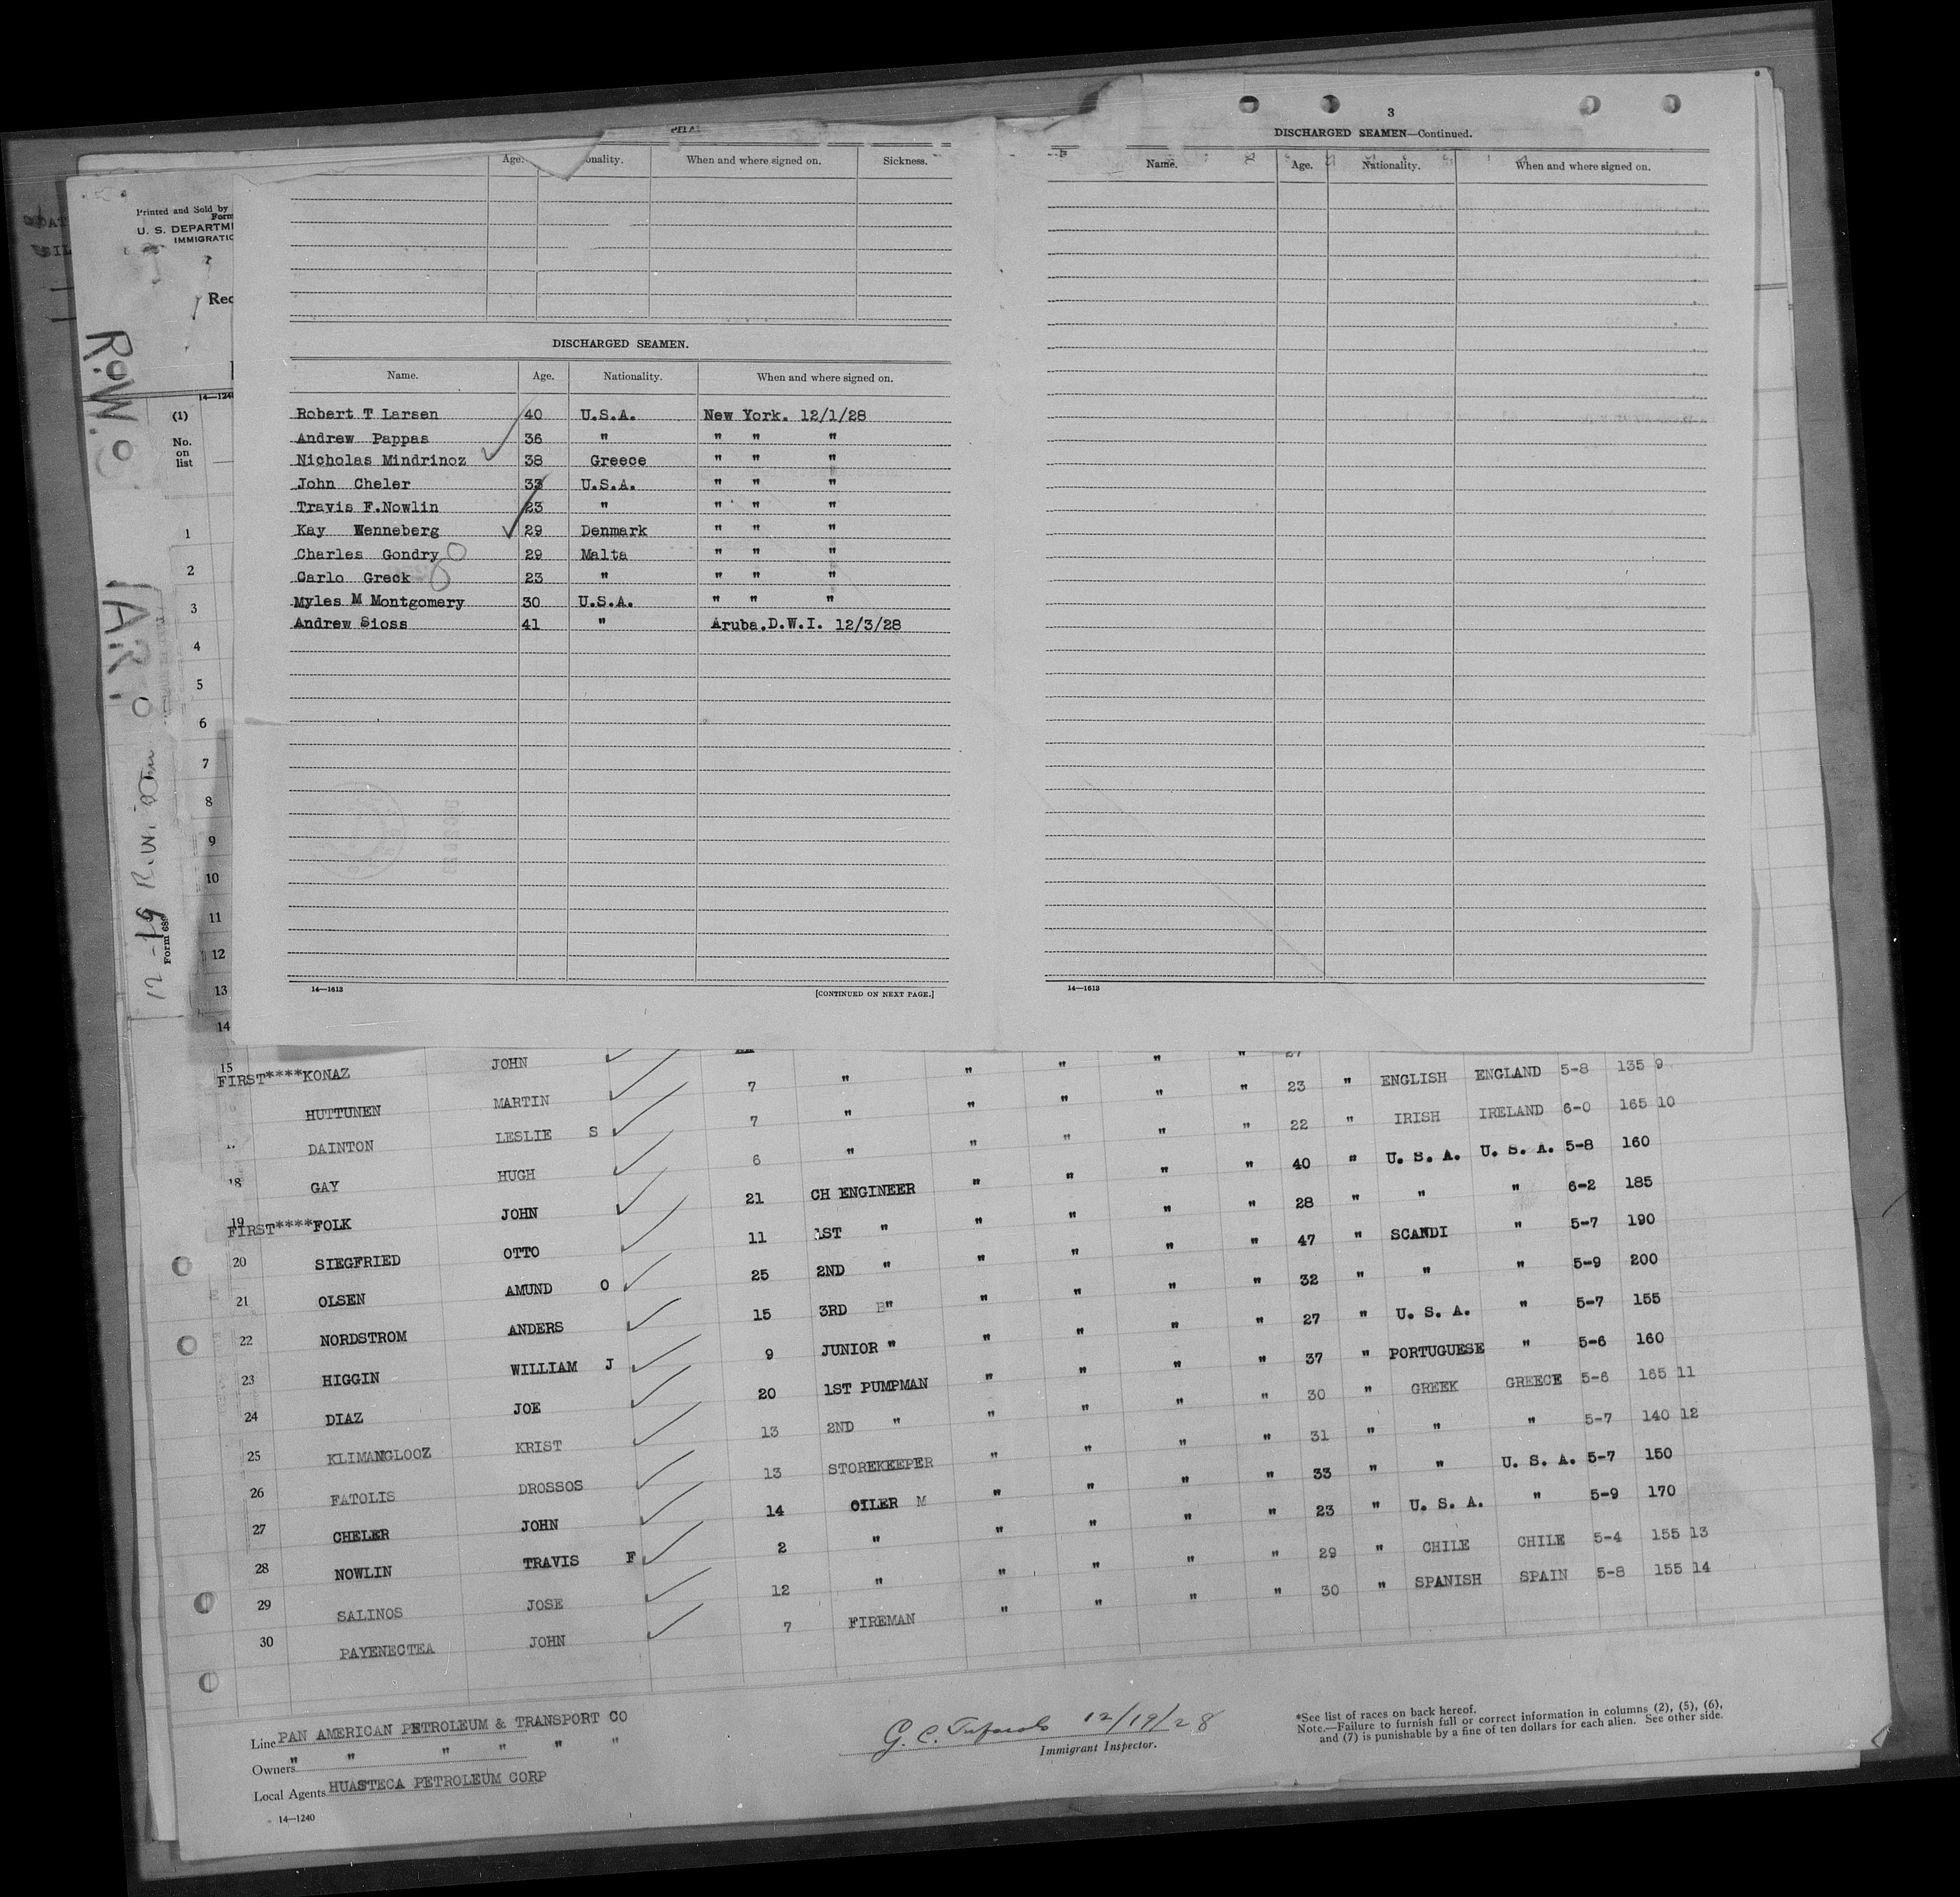 3
DISCHARGED SEAMEN—Continued.
Age. onality. When and where signed on. Sickness.
Name. Age. Nationality. When and where signed on.
Printed and Sold by
Form
U. S. DEPARTME
IMMIGRATIO
Rec
14—1240
(1)
No. on list
DISCHARGED SEAMEN.
Name. Age. Nationality. When and where signed on.
Robert T Larsen 40 U.S.A. New York. 12/1/28
Andrew Pappas 36 " " " "
Nicholas Mindrinoz 38 Greece " " "
John Cheler 33 U.S.A. " " "
Travis F.Nowlin 23 " " " "
Kay Wenneberg 29 Denmark " " "
Charles Gondry 29 Malta " " "
Carlo Greck 23 " " " "
Myles M Montgomery 30 U.S.A. " " "
Andrew Sioss 41 " Aruba.D.W.I. 12/3/28
14—1613 [CONTINUED ON NEXT PAGE.]
14—1613
R.W.O
Form 689
1
2
3
4
5
6
7
8
9
10
11
12
13
14
15 FIRST****KONAZ JOHN " " " " " 27
HUTTUNEN MARTIN 7 " " " " " 23 " ENGLISH ENGLAND 5-8 135 9
DAINTON LESLIE S 7 " " " " " 22 " IRISH IRELAND 6-0 165 10
18 GAY HUGH 6 " " " " " 40 " U. S. A. U. S. A. 5-8 160
19 FIRST****FOLK JOHN 21 CH ENGINEER " " " " 28 " " " 6-2 185
20 SIEGFRIED OTTO 11 1ST " " " " " 47 " SCANDI " 5-7 190
21 OLSEN AMUND O 25 2ND " " " " " 32 " " " 5-9 200
22 NORDSTROM ANDERS 15 3RD " " " " " 27 " U. S. A. " 5-7 155
23 HIGGIN WILLIAM J 9 JUNIOR " " " " " 37 " PORTUGUESE " 5-6 160
24 DIAZ JOE 20 1ST PUMPMAN " " " " 30 " GREEK GREECE 5-6 165 11
25 KLIMANGLOOZ KRIST 13 2ND " " " " " 31 " " " 5-7 140 12
26 FATOLIS DROSSOS 13 STOREKEEPER " " " " 33 " " U. S. A. 5-7 150
27 CHELER JOHN 14 OILER M " " " " 23 " U. S. A. " 5-9 170
28 NOWLIN TRAVIS F 2 " " " " " 29 " CHILE CHILE 5-4 155 13
29 SALINOS JOSE 12 " " " " " 30 " SPANISH SPAIN 5-8 155 14
30 PAYENECTEA JOHN 7 FIREMAN " " "
Line PAN AMERICAN PETROLEUM & TRANSPORT CO
Owners " " " " " "
Local Agents HUASTECA PETROLEUM CORP
14—1240
G. C. 12/19/28
Immigrant Inspector.
*See list of races on back hereof.
Note.—Failure to furnish full or correct information in columns (2), (5), (6),
and (7) is punishable by a fine of ten dollars for each alien. See other side.